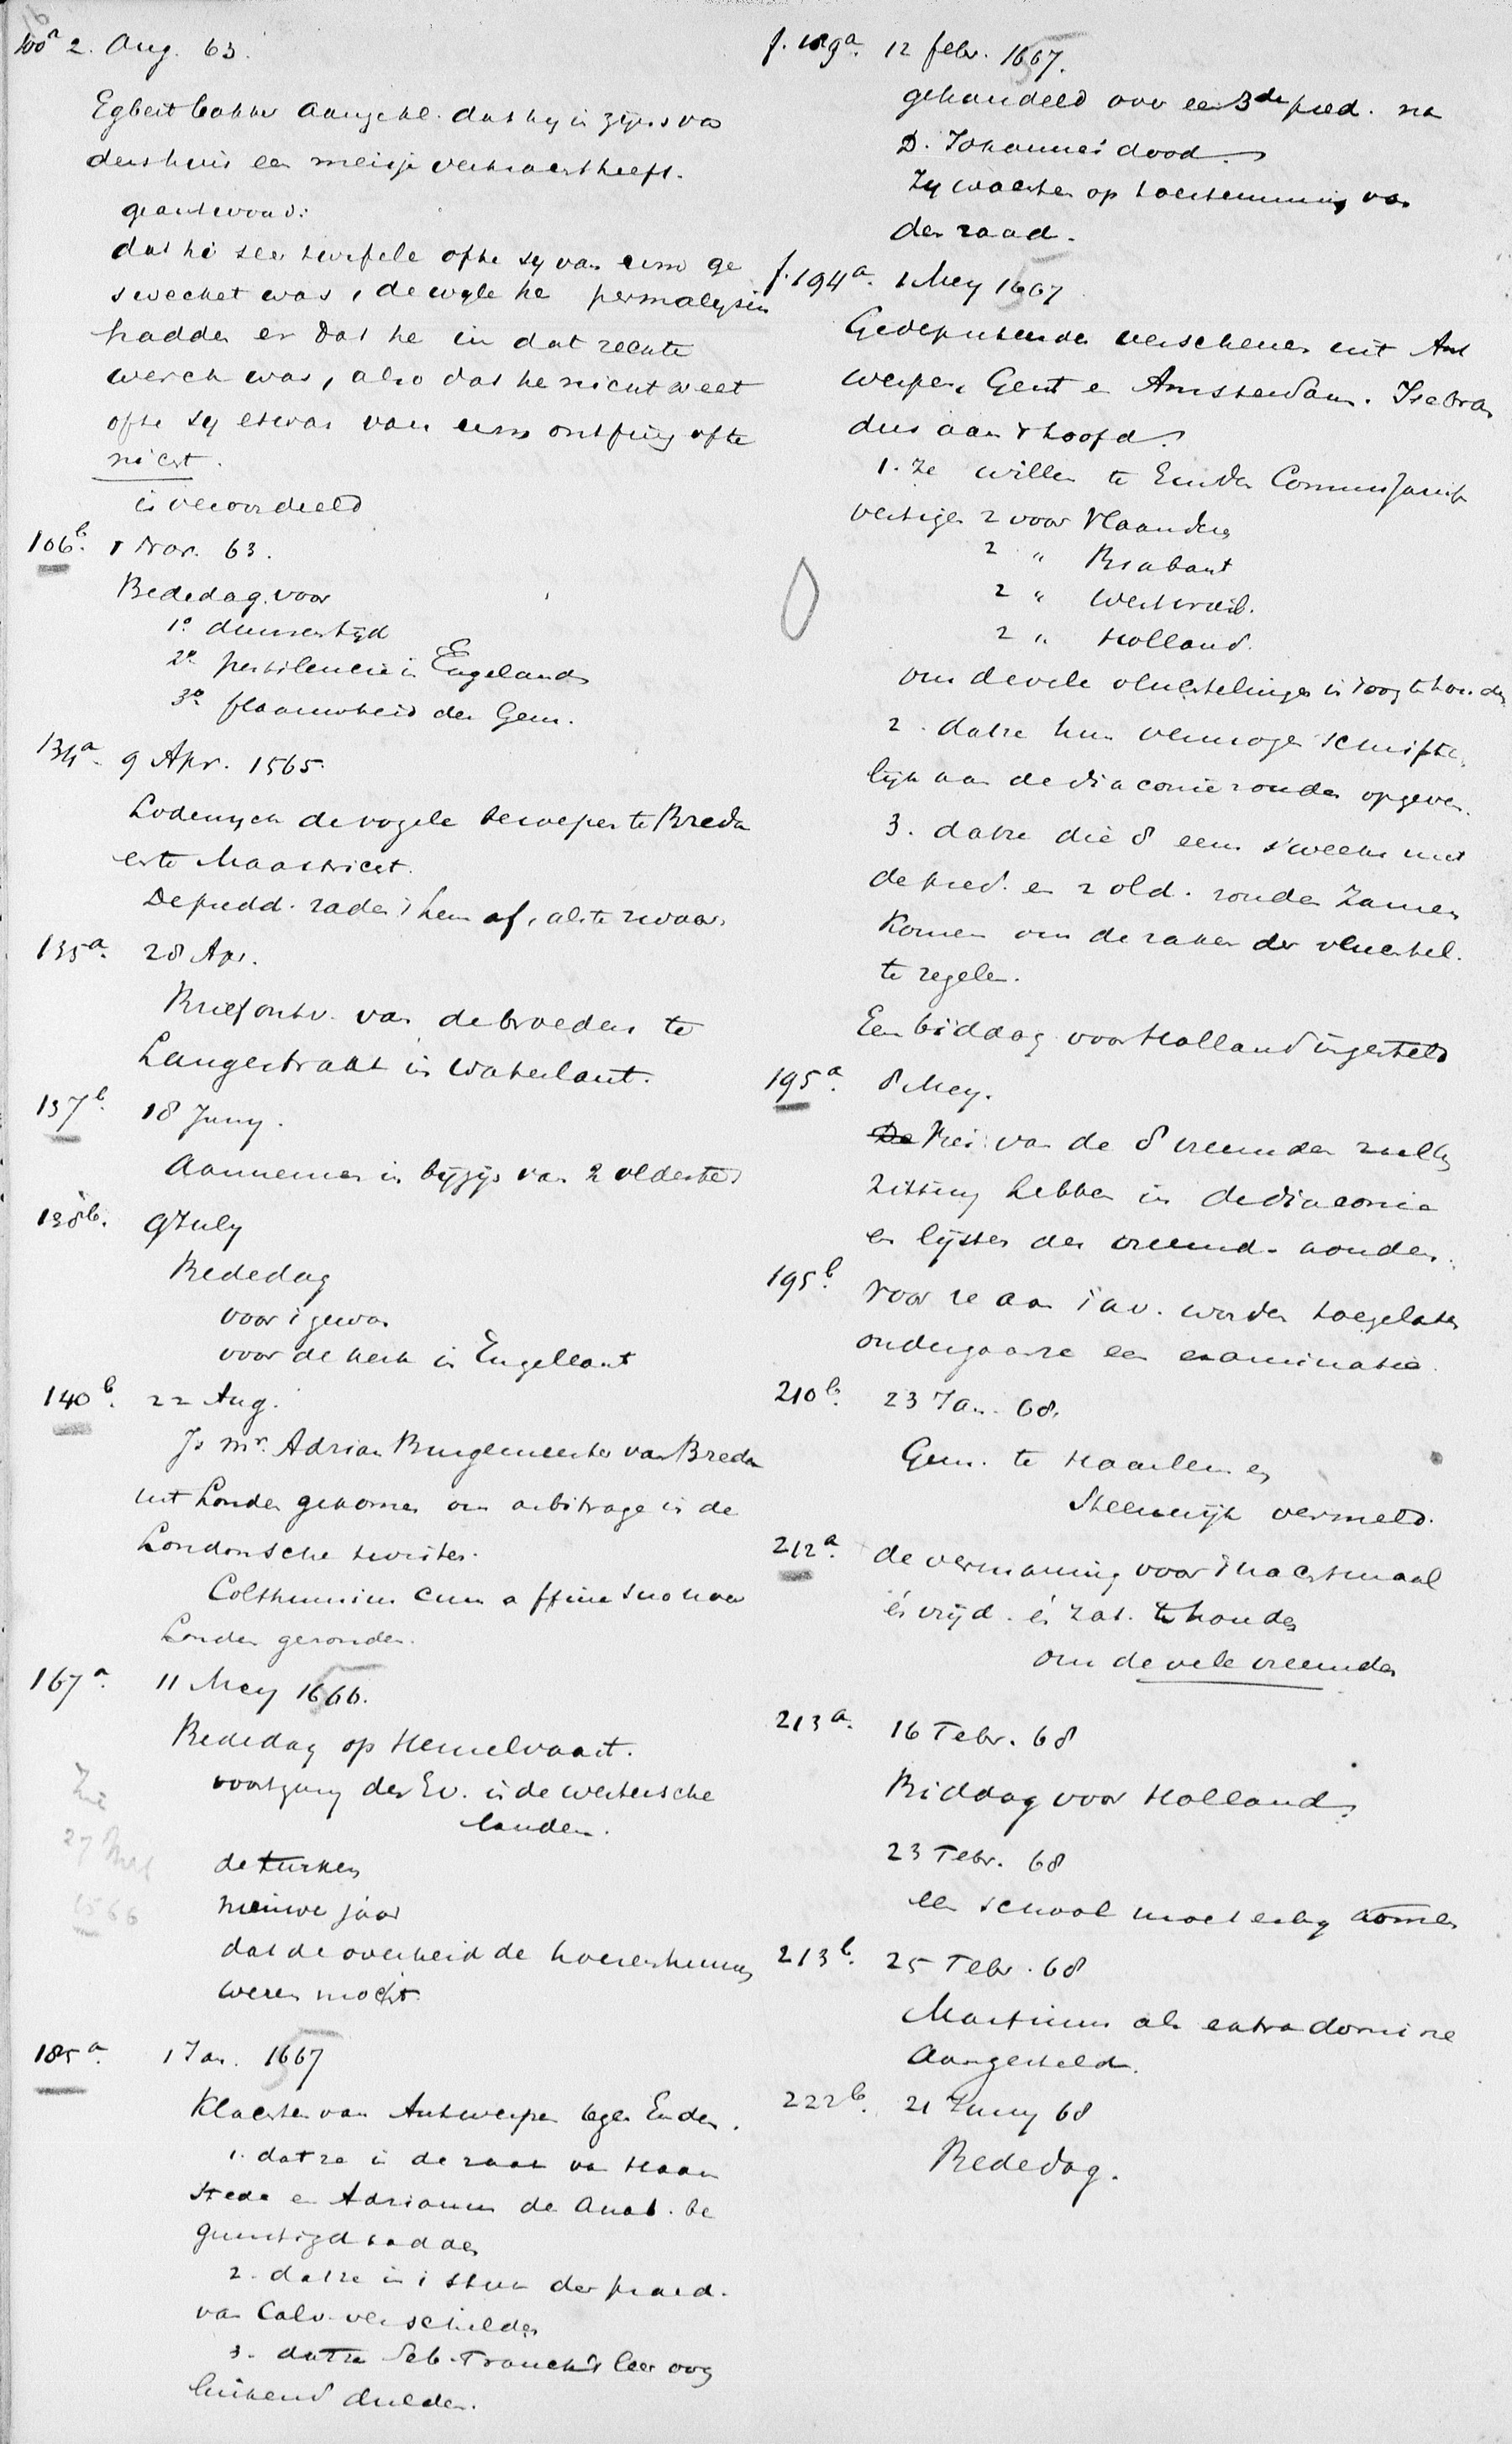 16
100a 2. Aug. 63.
Egbert backer aangekl. dat hy in zijns va
dershuis een meisje verkracht heeft.
geantwoord:
dat hi see twifele ofte sy van eme ge
swecket was, dewyle he permalysin
hadde en dat he in dat rechte
werck was, also dat he nicht weet
ofte sy etwas van eme ontfing ofte
nicht.
is veroordeeld
106b. 1 Nov. 63.
Bededag voor
1o duurentijd
2o pestilencie in Engeland
3o flaauwheid der Gem.
134a. 9 Apr. 1565.
Lodewych de vogele beroepen te Breda
en te Maastricht.
De predd. raden 't hem af, als te zwaar.
135a. 28 Apr.
Brief ontv. van de broeders te
Langestraat in Waterlant.
137b. 18 Juny.
Aannemen in bijzijn van 2 oldesten
138b. 9 July
Bededag
voor 't gewas
voor de kerk in Engellant
140b. 22 Aug.
Is mr. Adrian Burgemeester van Breda
uit Londen gekomen om arbitrage in de
Londonsche twisten.
Colthunium cum affine suo naar
Londen gezonden.
167a. 11 Mey 1666.
5
Bededag op Hemelvaart.
voortgang des Ev. in de westersche
landen.
Zie
27
1566
de turken
nieuwe jaar
dat de overheid de hoerenhuizen
weren mocht.
185a. 1 Jan. 1667
5
Klachten van Antwerpen tegen Emden.
1. dat ze in de zaak van Haam
stede en Adrianus de Anab. be
gunstigd hadden
2. dat ze in 't stuk der praed.
van Calv. verschilden
3. dat ze Seb. Franck's leer oog
luikend dulden.
f. 189a. 12 febr. 1667.
5
gehandeld over een 3de pred. na
D. Johannes dood.
Zy wachten op toestemming van
den raad.
f. 194a. 1 Mey 1667
5
Gedeputeerden verschenen uit Ant
werpen, Gent en Amsterdam. Isebran
dus aan 't hoofd.
1. Ze willen te Emden Commissarissen
vestigen 2 voor Vlaanderen
2 " Brabant
2 " Westvrial.
2 " Holland.
om de vele vluchtelingen in 't oog te houden
2. dat ze hun vermogen schrifte,
lijk aan de diaconie zouden opgeven.
3. dat ze die 8 eens 's weeks met
de pred. en 2 old. zouden zamen
komen om de zaken der vluchtel.
te regelen.
Een biddag voor Holland ingesteld
195a. 8 Mey.
De Vier van de 8 vreemden zullen
zitting hebben in de diaconie
en lijsten der vreemd. houden.
195b. Voor ze aan 't av. worden toegelaten
ondergaan ze een examinatie.
210b. 23 Jan. 68.
Gem. te Haarlem en
Steenwijk vermeld.
212a. de vermaning voor 't nachtmaal
én vrijd. én zat. te houden
om de vele vreemden
213a. 16 Febr. 68
Biddag voor Holland.
23 Febr. 68
een school moet er by komen
213b. 25 Febr. 68
Martinus als extra domine
aangesteld.
222b. 21 Juny 68
Bededag.